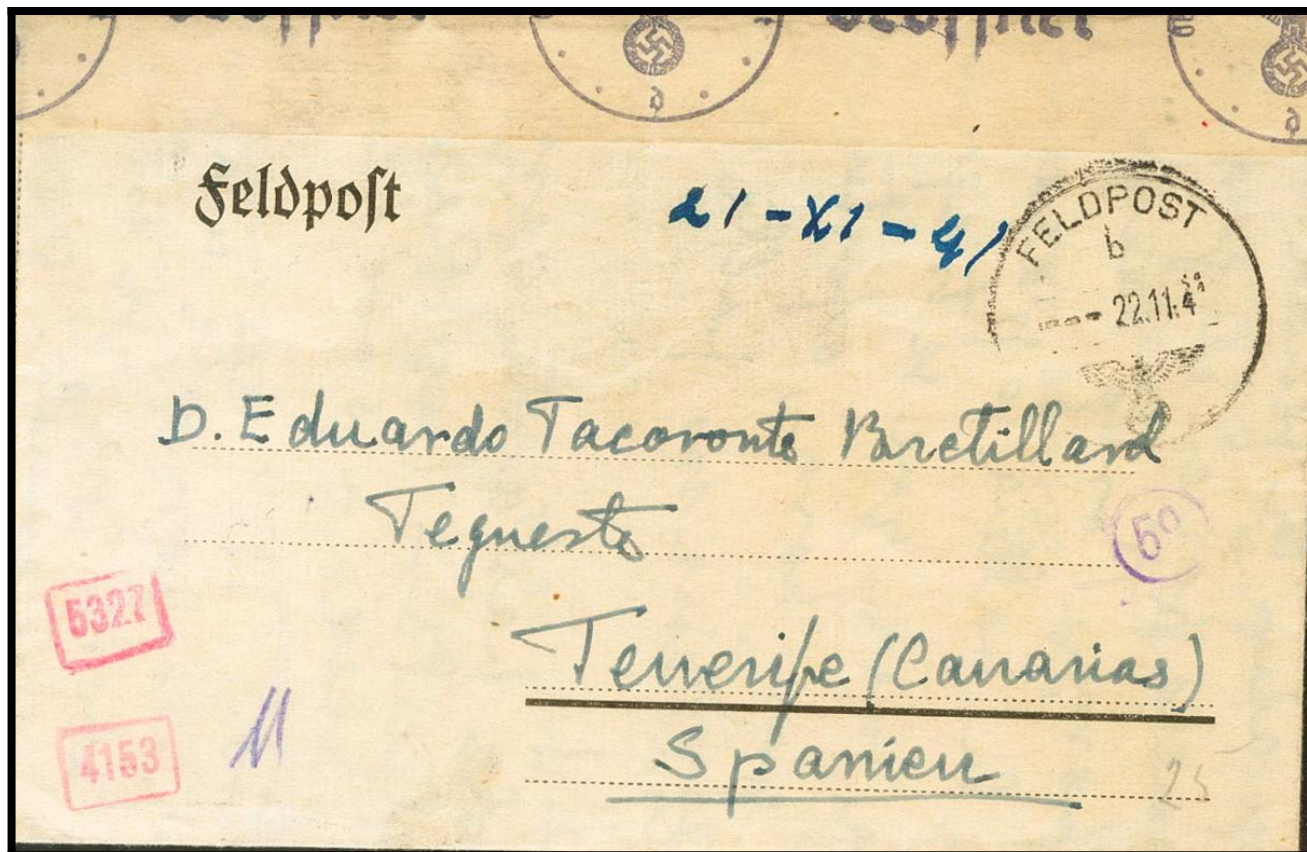 Feldpost
21-XI-41
FELDPOST
b
22.11.4
D. Eduardo Tacoronte Bretillard
Tegueste
5327
Tenerife (Canarias)
4153
Spanien
25